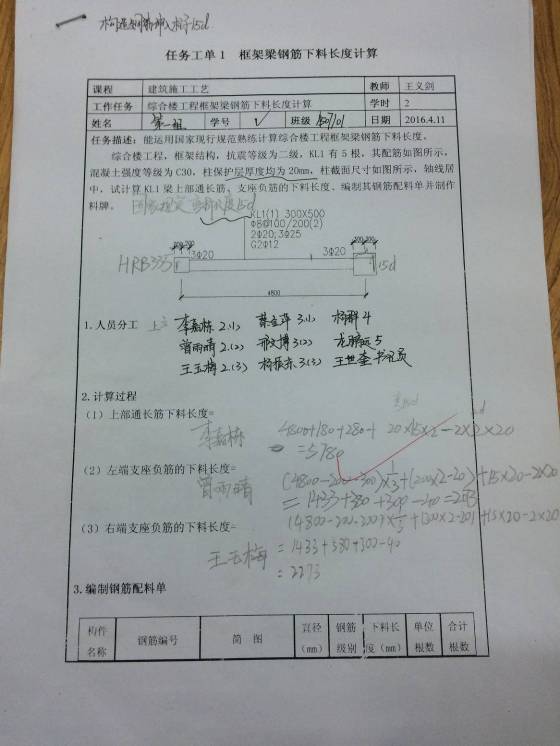 构造钢筋伸入柱子15d
任务工单1 框架梁钢筋下料长度计算
课程 建筑施工工艺 教师 王义剑
工作任务 综合楼工程框架梁钢筋下料长度计算 学时 2
姓名 第一组 学号 班级 日期 2016.4.11
任务描述：能运用国家现行规范熟练计算综合楼工程框架梁钢筋下料长度。
综合楼工程，框架结构，抗震等级为二级，KL1有5根，其配筋如图所示，
混凝土强度等级为C30，柱保护层厚度均为20mm，柱截面尺寸如图所示，轴线居
中，试计算KL1梁上部通长筋、支座负筋的下料长度、编制其钢筋配料单并制作
料牌。
国家规定 15d
KL1(1) 300X500
Φ8@100/200(2)
2Φ20;3Φ25
G2Φ12
200 200
HRB335
3Φ20
3Φ20
15d
4800
1.人员分工 李嘉栋 2.(1) 3.(1) 杨群 4
曾雨晴 2.(2) 邢文博 3(2) 5
王玉梅 2.(3) 杨振东 3(3) 王世奎 书记员
2.计算过程
（1）上部通长筋下料长度=
李嘉栋
4800+180+280+ 20×15×2-2×2×20
=5780
（2）左端支座负筋的下料长度=
曾雨晴
(4800-200-300)×1/3+(200×2-20)+15×20-2×20
=1433+380+300-40=2073
（3）右端支座负筋的下料长度=
王玉梅
(4800-200-300)×1/3+(300×2-20)+15×20-2×20
=1433+580+300-40
=2273
3.编制钢筋配料单
构件名称 钢筋编号 简 图 直径（mm） 钢筋级别 下料长度（mm） 单位根数 合计根数